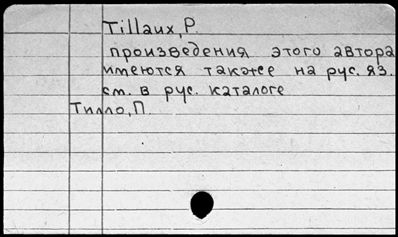 Tillaux, P.
произведения этого автора
имеются также на рус. яз.
см. в рус. каталоге
Тилло, П.